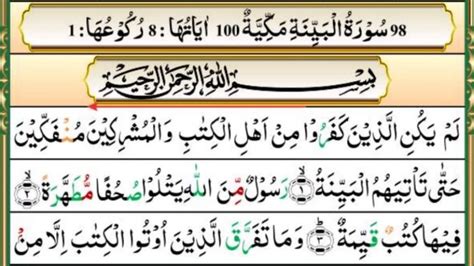 98 سُوْرَةُ الْبَيِّنَةِ مَكِّيَّةٌ 100 اٰيَاتُهَا: 8 رُكُوْعُهَا: 1
بِسْمِ اللّٰهِ الرَّحْمٰنِ الرَّحِيْمِ
لَمْ يَكُنِ الَّذِيْنَ كَفَرُوْا مِنْ اَهْلِ الْكِتٰبِ وَالْمُشْرِكِيْنَ مُنْفَكِّيْنَ
حَتّٰى تَاْتِيَهُمُ الْبَيِّنَةُ ۝١ رَسُوْلٌ مِّنَ اللّٰهِ يَتْلُوْا صُحُفًا مُّطَهَّرَةً ۝٢
فِيْهَا كُتُبٌ قَيِّمَةٌ ۝٣ وَمَا تَفَرَّقَ الَّذِيْنَ اُوْتُوا الْكِتٰبَ اِلَّا مِنْۢ